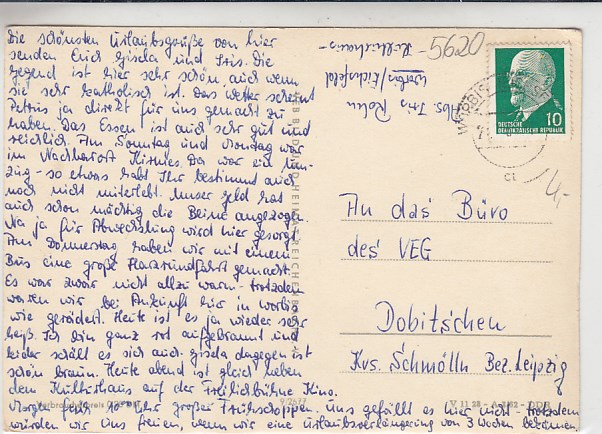 Die schönsten Urlaubsgrüße von hier
senden Euch Gisela und Iris. Die
Gegend ist hier sehr schön auch wenn
sie sehr katholisch ist. Das Wetter scheint
Petrus ja direkt für uns gemacht zu
haben. Das Essen ist auch sehr gut und
reichlich. Am Sonntag und Montag war
im Nachbarort Kirmes. Da war ein Um-
zug - so etwas habt Ihr bestimmt auch
noch nicht miterlebt. Unser Geld hat
auch schon mächtig die Beine angezogen
Na ja für Abwechslung wird hier gesorgt.
Am Donnerstag haben wir mit einem
Bus eine große Harzrundfahrt gemacht.
Es war zwar nicht allzu warm - trotzdem
waren wir bei Ankunft hier in Worbis
wie gerädert. Heute ist es ja wieder sehr
heiß. Ich bin ganz rot aufgebrannt und
leider schält es sich auch. Gisela dagegen ist
schön braun. Heute abend ist gleich neben
dem Kulturhaus auf der Freilichtbühne Kino.
Morgen früh 10 Uhr großer Frühschoppen. Uns gefällt es hier nicht - trotzdem
würden wir uns freuen, wenn wir eine Urlaubsverlängerung von 3 Wochen bekämen.
Verbraucherpreis
Abs. Iris
Worbis/Eichsfeld
Kulturhaus
5620
WORBIS
DEUTSCHE
DEMOKRATISCHE REPUBLIK
10
c1
4,-
An das Büro
des VEG
Dobitschen
Krs. Schmölln Bez. Leipzig
V 11 28 - A 1/62 - DDR